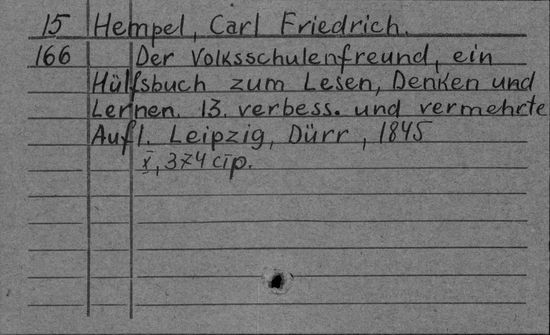 15 Hempel, Carl Friedrich.
166 Der Volksschulenfreund, ein
Hülfsbuch zum Lesen, Denken und
Lernen. 13. verbess. und vermehrte
Aufl. Leipzig, Dürr, 1845
X, 374 стр.